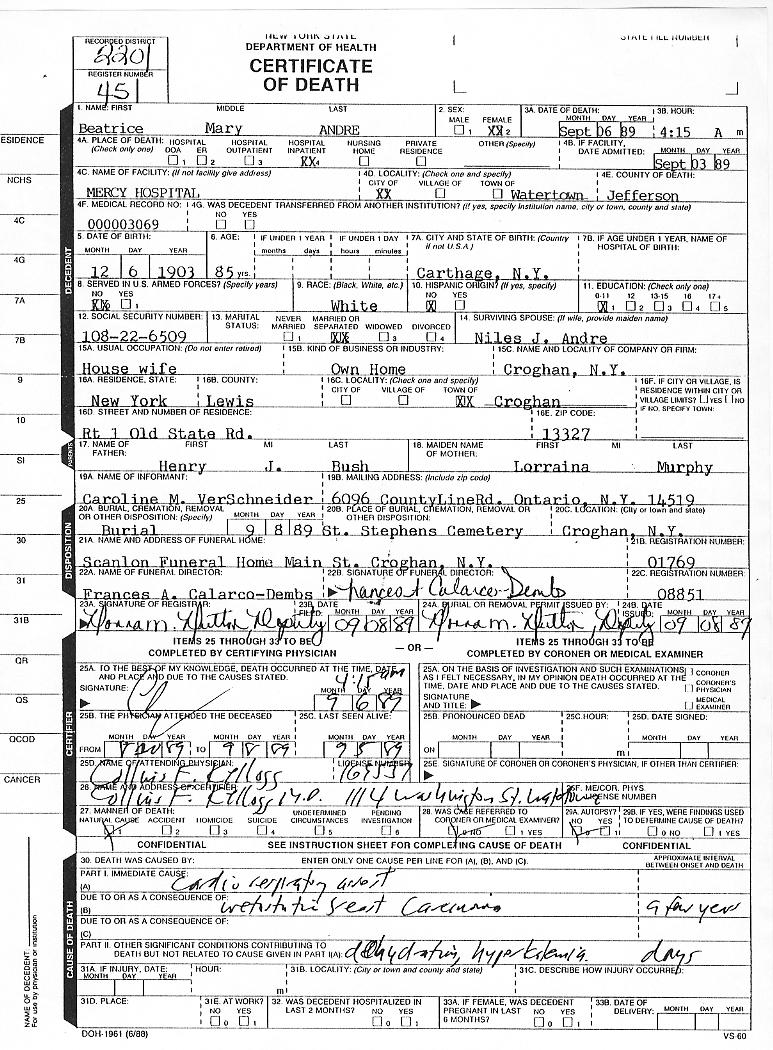 NEW YORK STATE
DEPARTMENT OF HEALTH
CERTIFICATE
OF DEATH
RECORDED DISTRICT
2201
REGISTER NUMBER
45
STATE FILE NUMBER
1. NAME: FIRST MIDDLE LAST 2. SEX: MALE FEMALE 3A. DATE OF DEATH: MONTH DAY YEAR 3B. HOUR:
Beatrice Mary ANDRE 1 XX 2 Sept 06 89 4:15 A m
4A. PLACE OF DEATH: (Check only one) HOSPITAL DOA HOSPITAL ER HOSPITAL OUTPATIENT HOSPITAL INPATIENT NURSING HOME PRIVATE RESIDENCE OTHER (Specify) 4B. IF FACILITY, DATE ADMITTED: MONTH DAY YEAR
1 2 3 XX4 Sept 03 89
4C. NAME OF FACILITY: (If not facility give address) 4D. LOCALITY: (Check one and specify) CITY OF VILLAGE OF TOWN OF 4E. COUNTY OF DEATH:
MERCY HOSPITAL XX Watertown Jefferson
4F. MEDICAL RECORD NO: 4G. WAS DECEDENT TRANSFERRED FROM ANOTHER INSTITUTION? (If yes, specify institution name, city or town, county and state)
000003069 NO YES
5. DATE OF BIRTH: MONTH DAY YEAR 6. AGE: IF UNDER 1 YEAR months days IF UNDER 1 DAY hours minutes 7A. CITY AND STATE OF BIRTH: (Country if not U.S.A.) 7B. IF AGE UNDER 1 YEAR, NAME OF HOSPITAL OF BIRTH:
12 6 1903 85 yrs. Carthage, N.Y.
8. SERVED IN U.S. ARMED FORCES? (Specify years) NO YES 9. RACE: (Black, White, etc.) 10. HISPANIC ORIGIN? (If yes, specify) NO YES 11. EDUCATION: (Check only one) 0-11 12 13-15 16 17+
XX 1 White X X1 2 3 4 5
12. SOCIAL SECURITY NUMBER: 13. MARITAL STATUS: NEVER MARRIED MARRIED OR SEPARATED WIDOWED DIVORCED 14. SURVIVING SPOUSE: (If wife, provide maiden name)
108-22-6509 1 XX 3 4 Niles J. Andre
15A. USUAL OCCUPATION: (Do not enter retired) 15B. KIND OF BUSINESS OR INDUSTRY: 15C. NAME AND LOCALITY OF COMPANY OR FIRM:
House wife Own Home Croghan, N.Y.
16A. RESIDENCE, STATE: 16B. COUNTY: 16C. LOCALITY: (Check one and specify) CITY OF VILLAGE OF TOWN OF 16F. IF CITY OR VILLAGE, IS RESIDENCE WITHIN CITY OR VILLAGE LIMITS? YES NO IF NO, SPECIFY TOWN:
New York Lewis XX Croghan
16D. STREET AND NUMBER OF RESIDENCE: 16E. ZIP CODE:
Rt 1 Old State Rd. 13327
17. NAME OF FATHER: FIRST MI LAST 18. MAIDEN NAME OF MOTHER: FIRST MI LAST
Henry J. Bush Lorraina Murphy
19A. NAME OF INFORMANT: 19B. MAILING ADDRESS: (Include zip code)
Caroline M. VerSchneider 6096 CountyLineRd. Ontario, N.Y. 14519
20A. BURIAL, CREMATION, REMOVAL OR OTHER DISPOSITION: (Specify) MONTH DAY YEAR 20B. PLACE OF BURIAL, CREMATION, REMOVAL OR OTHER DISPOSITION: 20C. LOCATION: (City or town and state)
Burial 9 8 89 St. Stephens Cemetery Croghan, N.Y.
21A. NAME AND ADDRESS OF FUNERAL HOME: 21B. REGISTRATION NUMBER:
Scanlon Funeral Home Main St. Croghan, N.Y. 01769
22A. NAME OF FUNERAL DIRECTOR: 22B. SIGNATURE OF FUNERAL DIRECTOR: 22C. REGISTRATION NUMBER:
Frances A. Calarco-Dembs Frances A Calarco-Dembs 08851
23A. SIGNATURE OF REGISTRAR: 23B. DATE FILED: MONTH DAY YEAR 24A. BURIAL OR REMOVAL PERMIT ISSUED BY: 24B. DATE ISSUED: MONTH DAY YEAR
Deputy 09 08 89 Deputy 09 08 89
ITEMS 25 THROUGH 33 TO BE COMPLETED BY CERTIFYING PHYSICIAN
— OR —
ITEMS 25 THROUGH 33 TO BE COMPLETED BY CORONER OR MEDICAL EXAMINER
25A. TO THE BEST OF MY KNOWLEDGE, DEATH OCCURRED AT THE TIME, DATE AND PLACE AND DUE TO THE CAUSES STATED. 4:15 am
SIGNATURE: MONTH DAY YEAR
9 6 89
25A. ON THE BASIS OF INVESTIGATION AND SUCH EXAMINATIONS AS I FELT NECESSARY, IN MY OPINION DEATH OCCURRED AT THE TIME, DATE AND PLACE AND DUE TO THE CAUSES STATED.
SIGNATURE AND TITLE:
CORONER
CORONER'S PHYSICIAN
MEDICAL EXAMINER
25B. THE PHYSICIAN ATTENDED THE DECEASED 25C. LAST SEEN ALIVE: 25B. PRONOUNCED DEAD 25C. HOUR: 25D. DATE SIGNED:
FROM MONTH DAY YEAR TO MONTH DAY YEAR MONTH DAY YEAR ON MONTH DAY YEAR m MONTH DAY YEAR
25D. NAME OF ATTENDING PHYSICIAN: LICENSE NUMBER 25E. SIGNATURE OF CORONER OR CORONER'S PHYSICIAN, IF OTHER THAN CERTIFIER:
Collins F. Kellogg
26. NAME AND ADDRESS OF CERTIFIER: 25F. ME/COR. PHYS. LICENSE NUMBER
Collins F. Kellogg M.D. 1114 Washington St.
27. MANNER OF DEATH: NATURAL CAUSE ACCIDENT HOMICIDE SUICIDE UNDETERMINED CIRCUMSTANCES PENDING INVESTIGATION 28. WAS CASE REFERRED TO CORONER OR MEDICAL EXAMINER? 29A. AUTOPSY? NO YES 29B. IF YES, WERE FINDINGS USED TO DETERMINE CAUSE OF DEATH?
1 2 3 4 5 6 0 NO 1 YES 0 1 0 NO 1 YES
CONFIDENTIAL SEE INSTRUCTION SHEET FOR COMPLETING CAUSE OF DEATH CONFIDENTIAL
30. DEATH WAS CAUSED BY: ENTER ONLY ONE CAUSE PER LINE FOR (A), (B), AND (C). APPROXIMATE INTERVAL BETWEEN ONSET AND DEATH
PART I. IMMEDIATE CAUSE:
(A) Cardio respiratory arrest
DUE TO OR AS A CONSEQUENCE OF:
(B) metastatic breast Carcinoma a few years
DUE TO OR AS A CONSEQUENCE OF:
(C)
PART II. OTHER SIGNIFICANT CONDITIONS CONTRIBUTING TO DEATH BUT NOT RELATED TO CAUSE GIVEN IN PART I(A): dehydration, days
31A. IF INJURY, DATE: MONTH DAY YEAR HOUR: m 31B. LOCALITY: (City or town and county and state) 31C. DESCRIBE HOW INJURY OCCURRED:
31D. PLACE: 31E. AT WORK? NO YES 0 1 32. WAS DECEDENT HOSPITALIZED IN LAST 2 MONTHS? NO YES 0 1 33A. IF FEMALE, WAS DECEDENT PREGNANT IN LAST 6 MONTHS? NO YES 0 1 33B. DATE OF DELIVERY: MONTH DAY YEAR
DOH-1961 (6/88) VS-60
ESIDENCE
NCHS
4C
4G
7A
7B
9
10
SI
25
30
31
31B
QR
QS
QCOD
CANCER
DECEDENT
PARENTS
DISPOSITION
CERTIFIER
CAUSE OF DEATH
NAME OF DECEDENT
For use by physician or institution